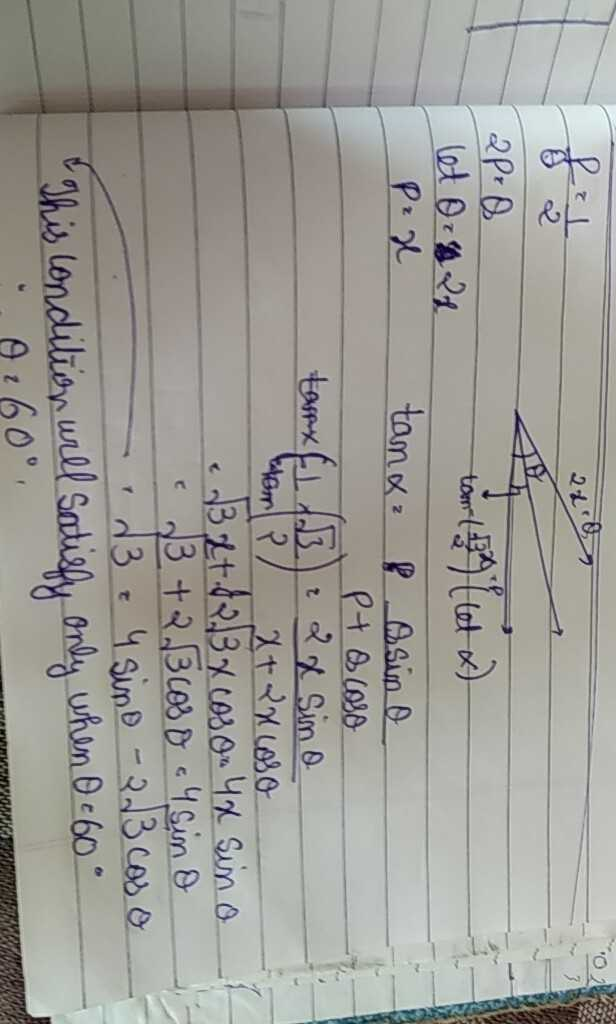 P/Q = 1/2
2P = Q
let Q = 2x
P = x
2x = Q
θ
x = P
tan⁻¹(√3/2) (let α)
tan α = Q sin θ / P + Q cos θ
tan x { tan⁻¹ (√3/2) = 2x sin θ / x + 2x cos θ
= √3x + 2√3x cos θ = 4x sin θ
= √3 + 2√3 cos θ = 4 sin θ
= √3 = 4 sin θ - 2√3 cos θ
This condition will satisfy only when θ = 60°
∴ θ = 60°.